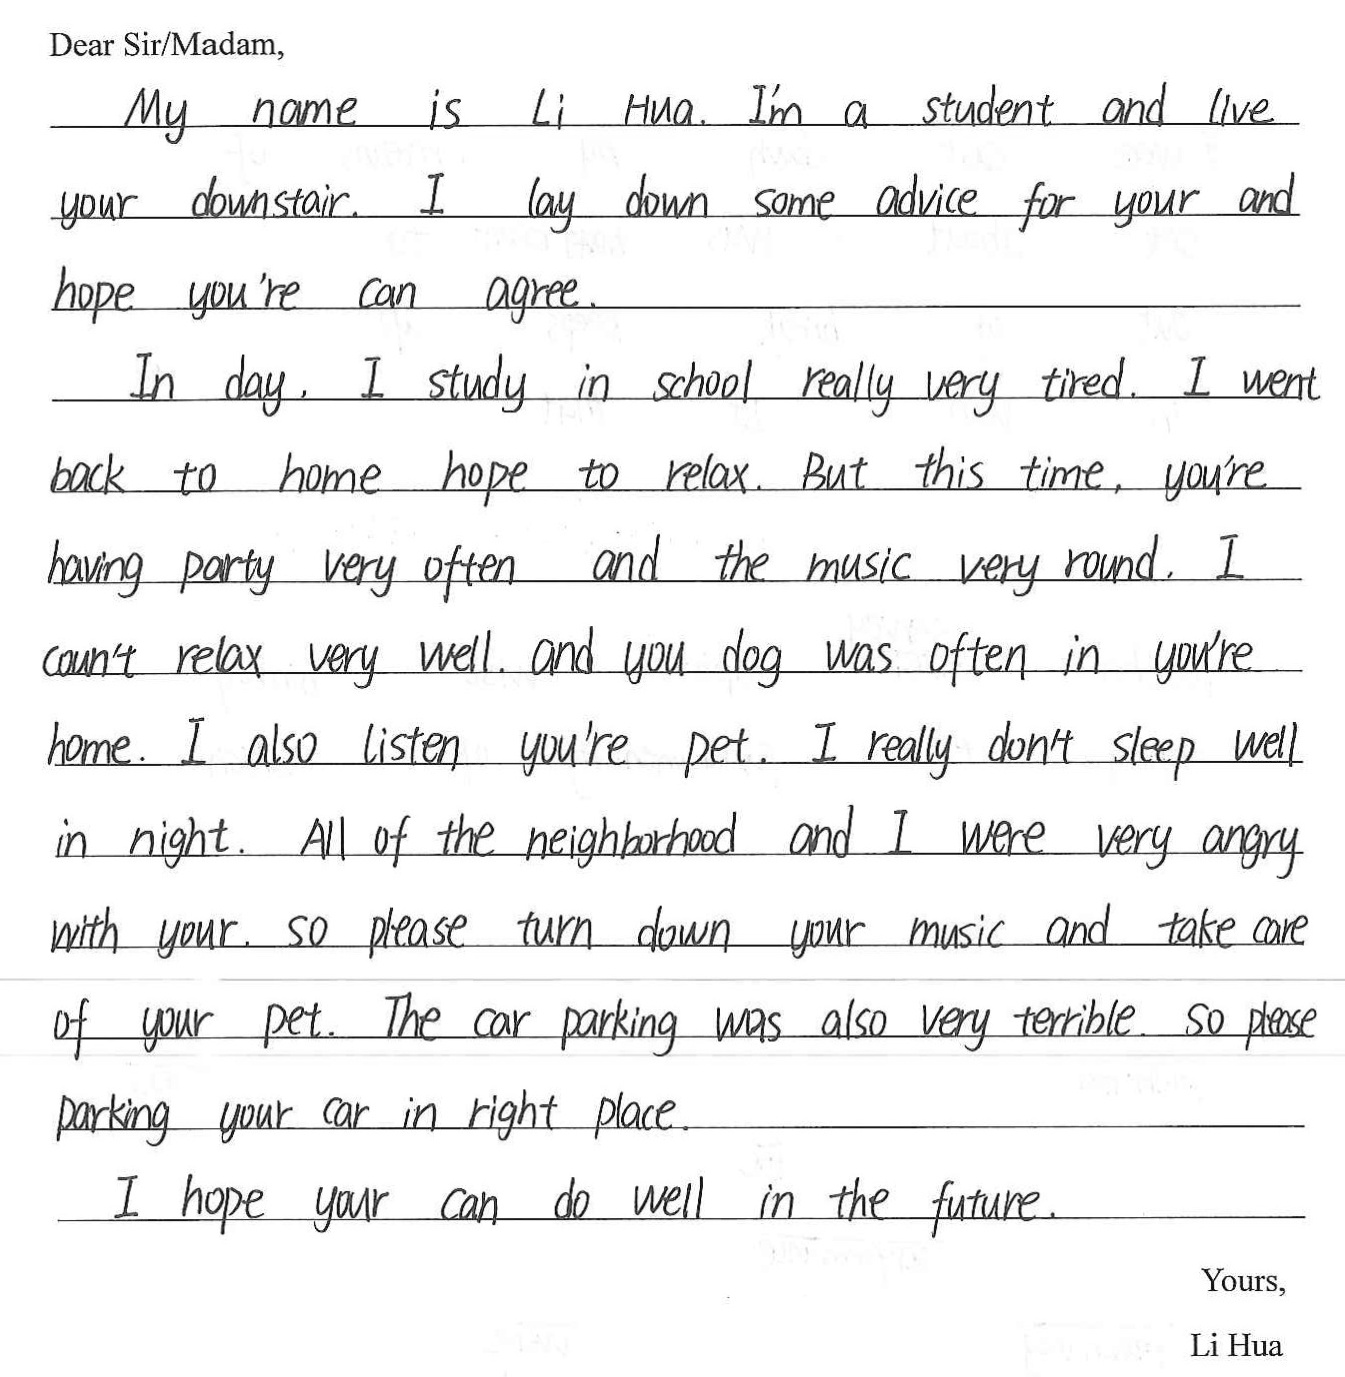 Dear Sir/Madam,
My name is Li Hua. I'm a student and live
your downstair. I lay down some advice for your and
hope you're can agree.
In day. I study in school really very tired. I went
back to home hope to relax. But this time, you're
having party very often and the music very round. I
coun't relax very well. and you dog was often in you're
home. I also listen you're pet. I really don't sleep well
in night. All of the neighborhood and I were very angry
with your. so please turn down your music and take care
of your pet. The car parking was also very terrible. so please
parking your car in right place.
I hope your can do well in the future.
Yours,
Li Hua